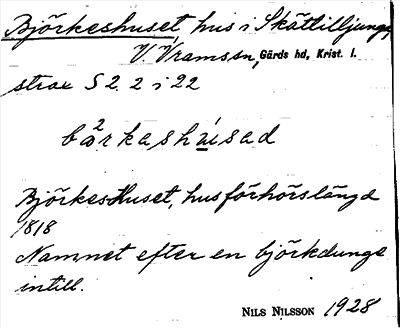 Björkeshuset, hus i Skättilljunga,
V. Vramssn, Gärds hd, Krist. l.
strax S 2. 2 i 22
bä²rkashu̲sad
BjörkesHuset, husförhörslängd
1818
Namnet efter en björkdunge
intill.
NILS NILSSON 1928